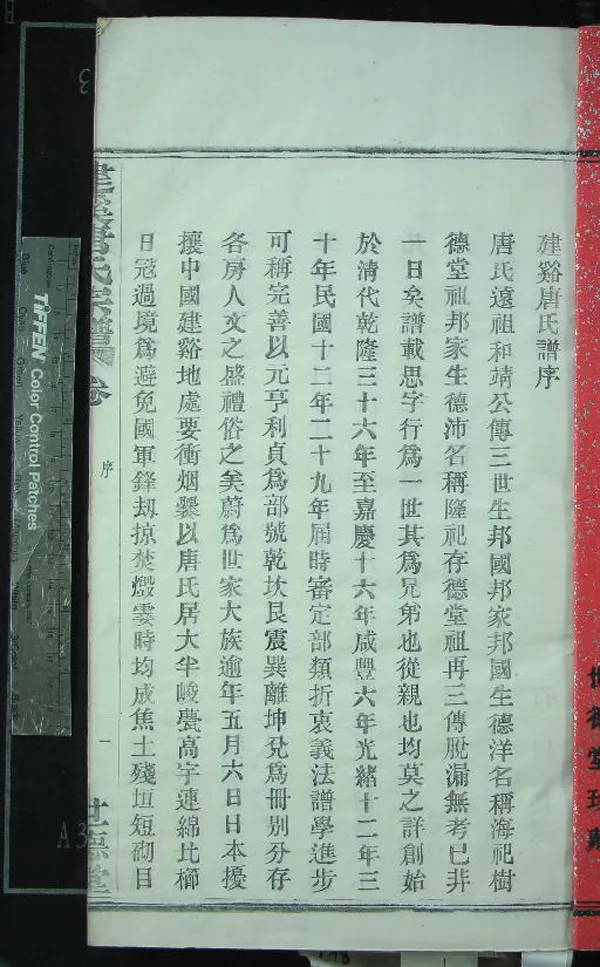 世德堂
建谿唐氏譜序
唐氏遠祖和靖公傳三世生邦國邦家邦國生德洋名稱海祀樹
德堂祖邦家生德沛名稱隆祀存德堂祖再三傳脫漏無考已非
一日矣譜載思字行為一世其為兄弟也從親也均莫之詳創始
於清代乾隆三十六年至嘉慶十六年咸豐六年光緒十二年三
十年民國十二年二十九年屆時審定部類折衷義法譜學進步
可稱完善以元亨利貞為部號乾坎艮震巽離坤兌為冊別分存
各房人文之盛禮俗之美蔚為世家大族逾年五月六日日本擾
攘中國建谿地處要衝烟爨以唐氏居大半峻甍高宇連綿比櫛
日冦過境為避免國軍鋒刼掠焚燬霎時均成焦土殘垣短砌目
建谿唐氏宗譜
卷
序
一
世德堂
TIFFEN Color Control Patches
Blue
Cyan
Green
Yellow
Black
A3